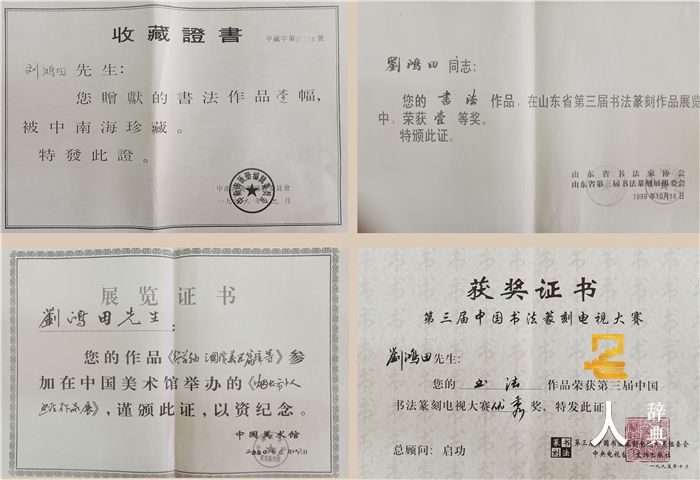 收藏證書
中藏字第 號
刘鸿田先生:
您贈獻的書法作品壹幅,
被中南海珍藏。
特發此證。
劉鴻田同志:
您的 書法 作品,在山东省第三届书法篆刻作品展览
中,荣获 壹 等奖。
特颁此证。
山东省书法家协会
山东省第三届书法篆刻展组委会
1999年10月16日
展览证书
劉鴻田先生:
您的作品 参
加在中国美术馆举办的
,谨颁此证,以资纪念。
中国美术馆
获奖证书
第三届中国书法篆刻电视大赛
劉鴻田先生:
您的 书法 作品荣获第三届中国
书法篆刻电视大赛优秀奖,特发此证
总顾问:启功
书法篆刻
中央电视台
一九九五年十月
人 辞典